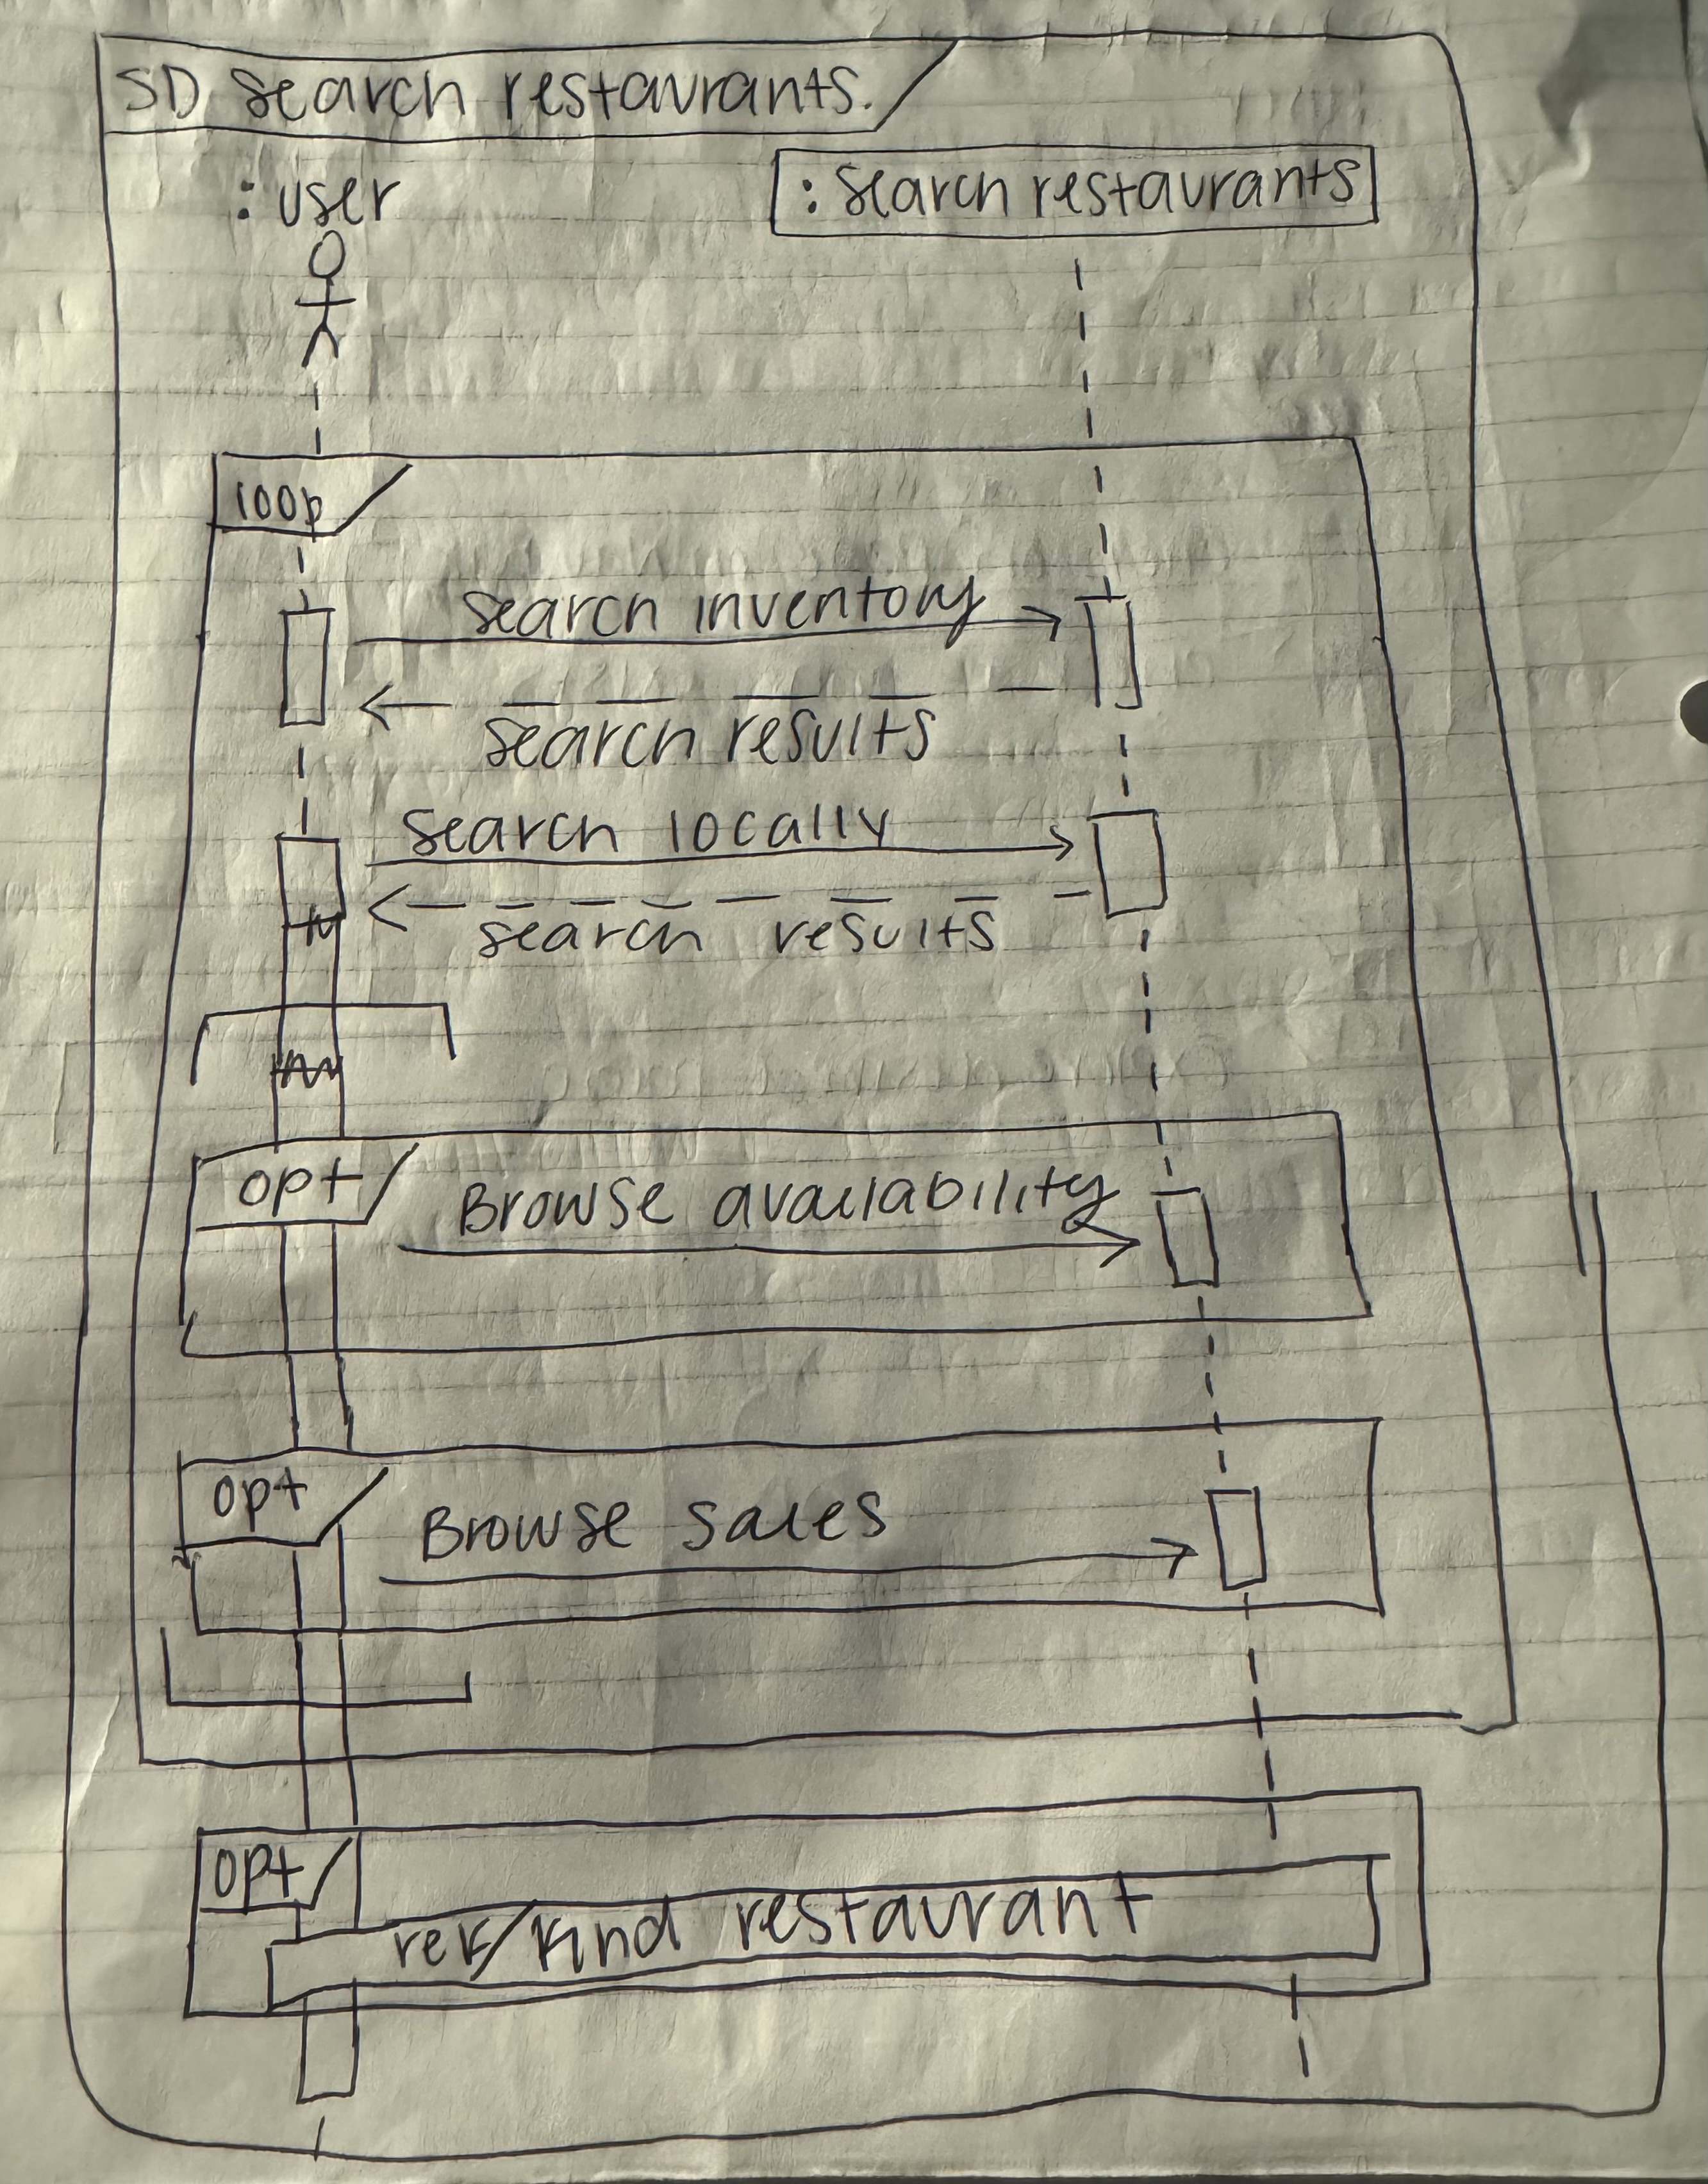 SD search restaurants.
: user
: search restaurants
loop
search inventory
search results
search locally
search results
opt
Browse availability
opt
Browse sales
opt
restaurant